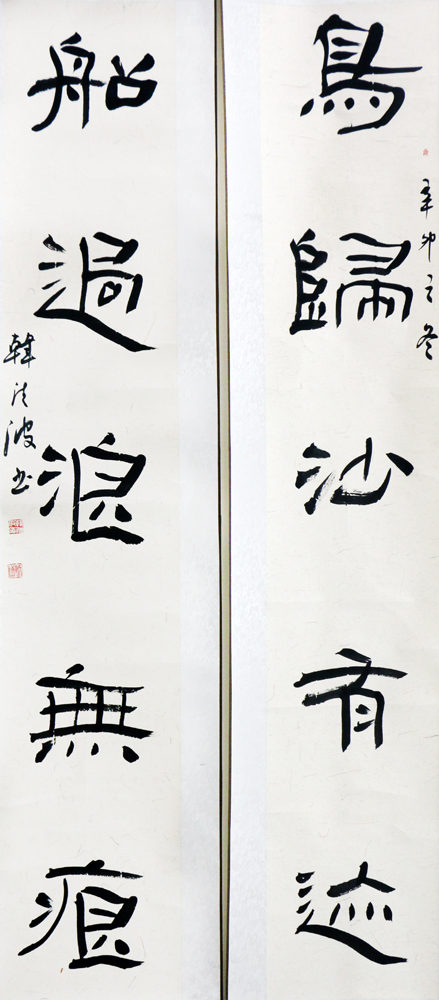 鳥歸沙有迹
辛卯之冬
船過浪無痕
韓法波书